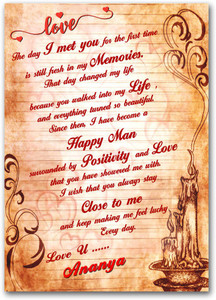 love
The day I met you for the first time
is still fresh in my Memories.
That day changed my life
because you walked into my Life ,
and everything turned so beautiful.
Since then, I have become a
Happy Man
surrounded by Positivity and Love
that you have showered me with
I wish that you always stay
Close to me
and keep making me feel lucky
Every day.
Love U ......
Ananya